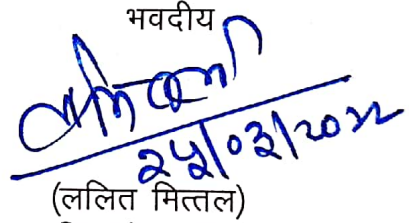 भवदीय
२५/०३/२०२२
(ललित मित्तल)